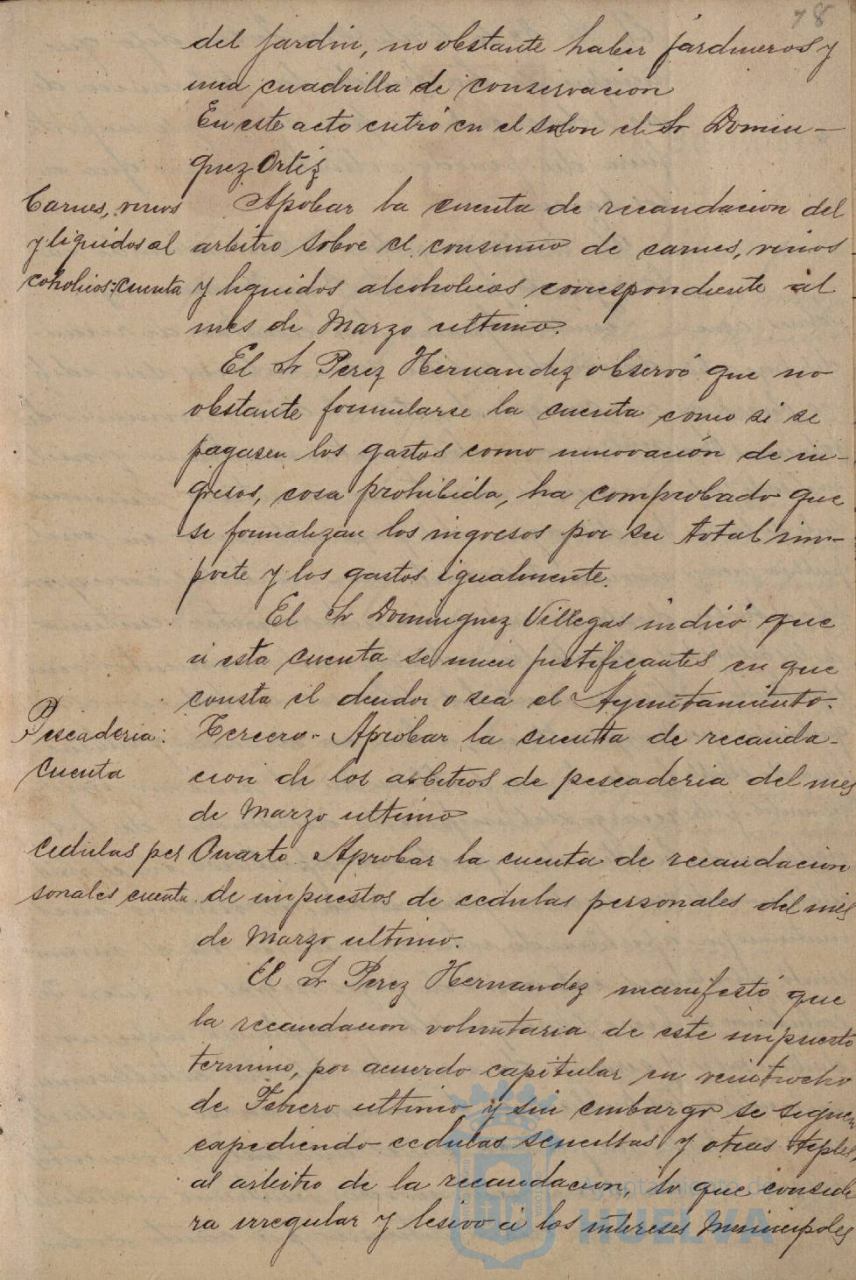 78
del jardin, no obstante haber jardineros y
una cuadrilla de conservacion
En este acto entró en el salon el Sr Domin-
guez Ortiz
Carnes, vinos
y liquidos al
coholicos: cuenta
Apobar la cuenta de recaudacion del
arbitro sobre el consumo de carnes, vinos
y liquidos alcoholicos correspondiente al
mes de Marzo ultimo.
El Sr Perez Hernandez observó que no
obstante formularse la cuenta como si se
pagasen los gastos como minoración de in-
gresos, cosa prohibida, ha comprobado que
se formalizan los ingresos por su total im-
porte y los gastos igualmente.
El Sr Dominguez Villegas indicó que
a esta cuenta se unen justificantes en que
consta el deudor o sea el Ayuntamiento.
Pescaderia:
cuenta
Tercero- Aprobar la cuenta de recauda-
cion de los arbitros de pescaderia del mes
de Marzo ultimo
cedulas per
sonales cuenta
Cuarto. Aprobar la cuenta de recaudacion
de impuestos de cedulas personales del mes
de Marzo ultimo.
El Sr Perez Hernandez manifestó que
la recaudacion voluntaria de este impuesto
termino, por acuerdo capitular en veintiocho
de Febrero ultimo y sin embargo se siguen
expediendo cedulas sencillas y otras
al arbitro de la recaudacion, lo que conside
ra irregular y lesivo a los intereses Municipales
Ayuntamiento de
HUELVA